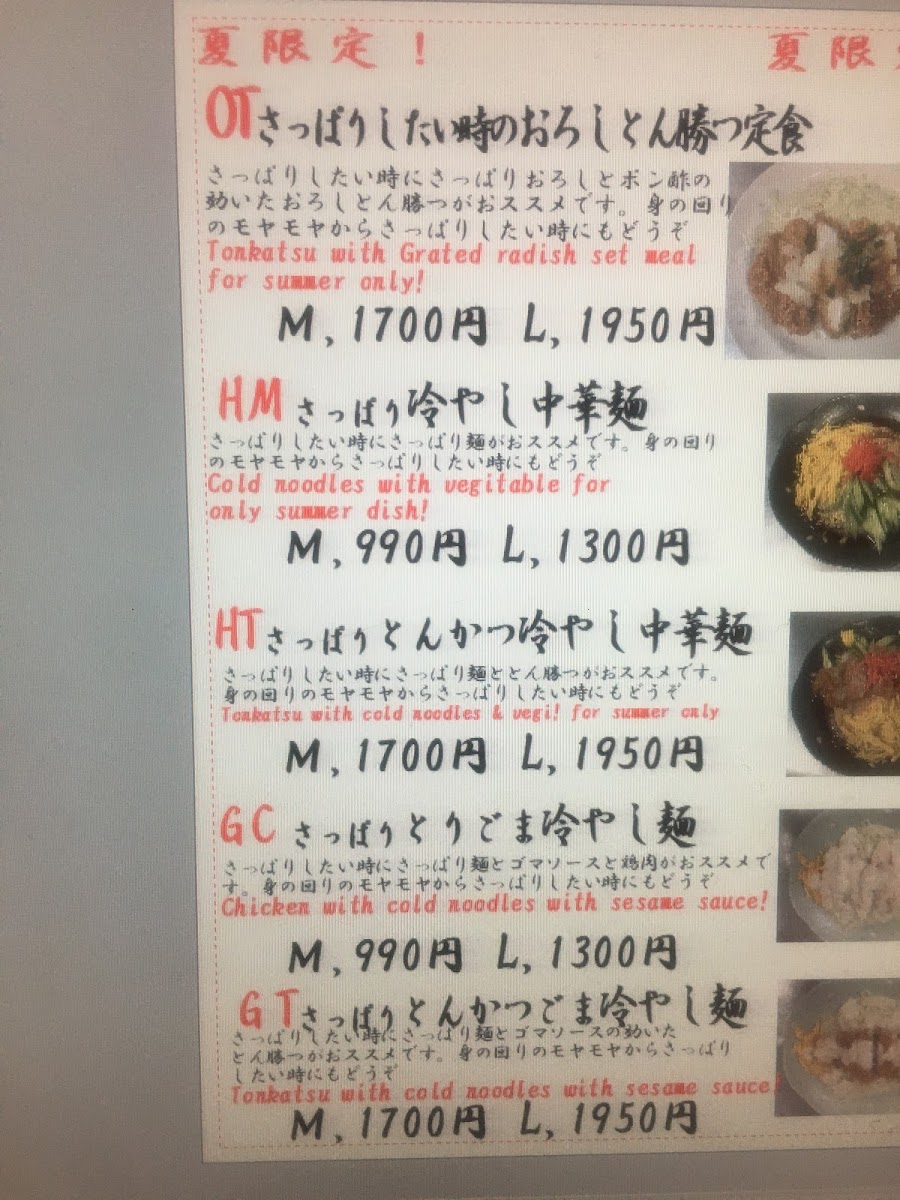 夏限定！
夏限
OTさっぱりしたい時のおろしとん勝つ定食
さっぱりしたい時にさっぱりおろしとポン酢の
効いたおろしとん勝つがおススメです。身の回り
のモヤモヤからさっぱりしたい時にもどうぞ
Tonkatsu with Grated radish set meal
for summer only!
M,1700円 L,1950円
HMさっぱり冷やし中華麺
さっぱりしたい時にさっぱり麺がおススメです。身の回り
のモヤモヤからさっぱりしたい時にもどうぞ
Cold noodles with vegitable for
only summer dish!
M,990円 L,1300円
HTさっぱりとんかつ冷やし中華麺
さっぱりしたい時にさっぱり麺ととん勝つがおススメです。
身の回りのモヤモヤからさっぱりしたい時にもどうぞ
Tonkatsu with cold noodles & vegi! for summer only
M,1700円 L,1950円
GC さっぱりとりごま冷やし麺
さっぱりしたい時にさっぱり麺とゴマソースと鶏肉がおススメで
す。身の回りのモヤモヤからさっぱりしたい時にもどうぞ
Chicken with cold noodles with sesame sauce!
M,990円 L,1300円
GTさっぱりとんかつごま冷やし麺
さっぱりしたい時にさっぱり麺とゴマソースの効いた
とん勝つがおススメです。身の回りのモヤモヤからさっぱり
したい時にもどうぞ
Tonkatsu with cold noodles with sesame sauce!
M,1700円 L,1950円